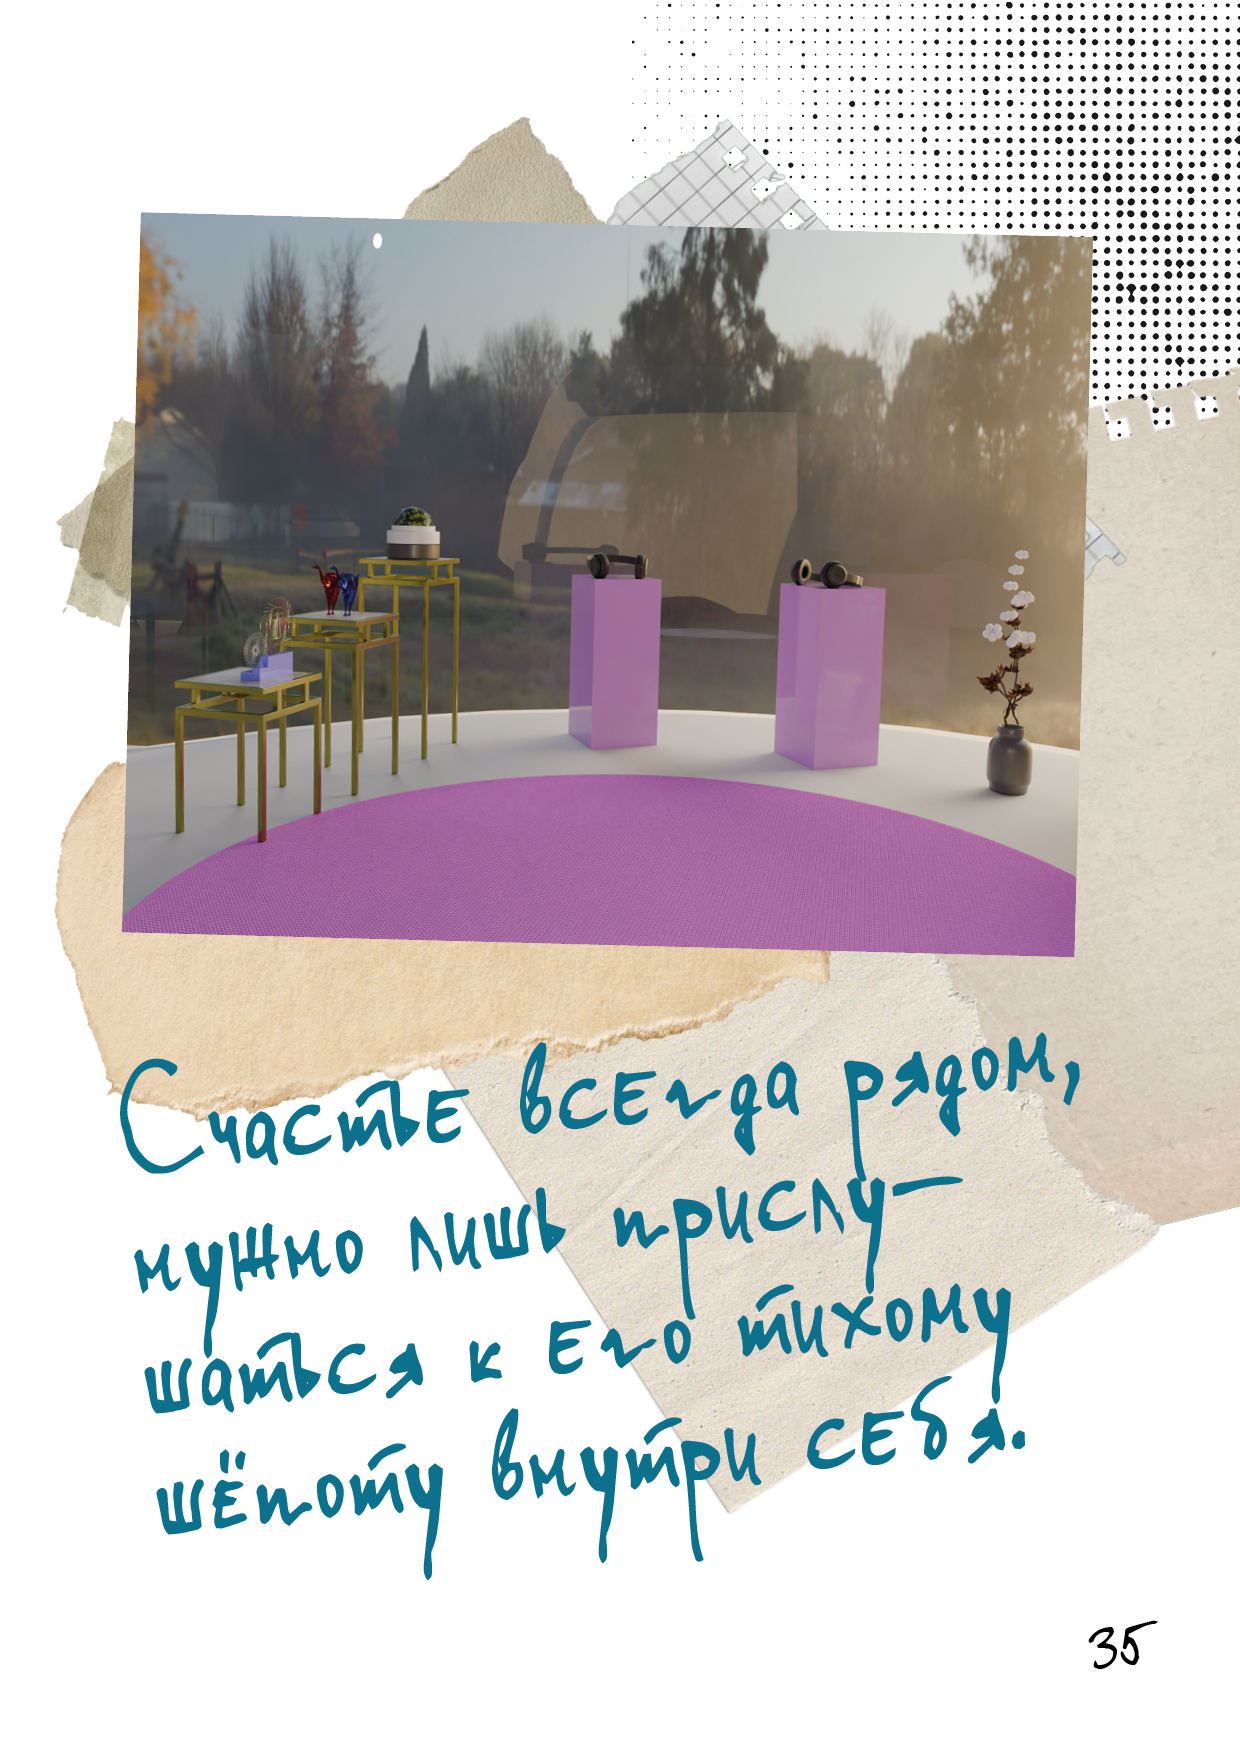 Счастье всегда рядом,
нужно лишь прислу-
шаться к его тихому
шёпоту внутри себя.
35